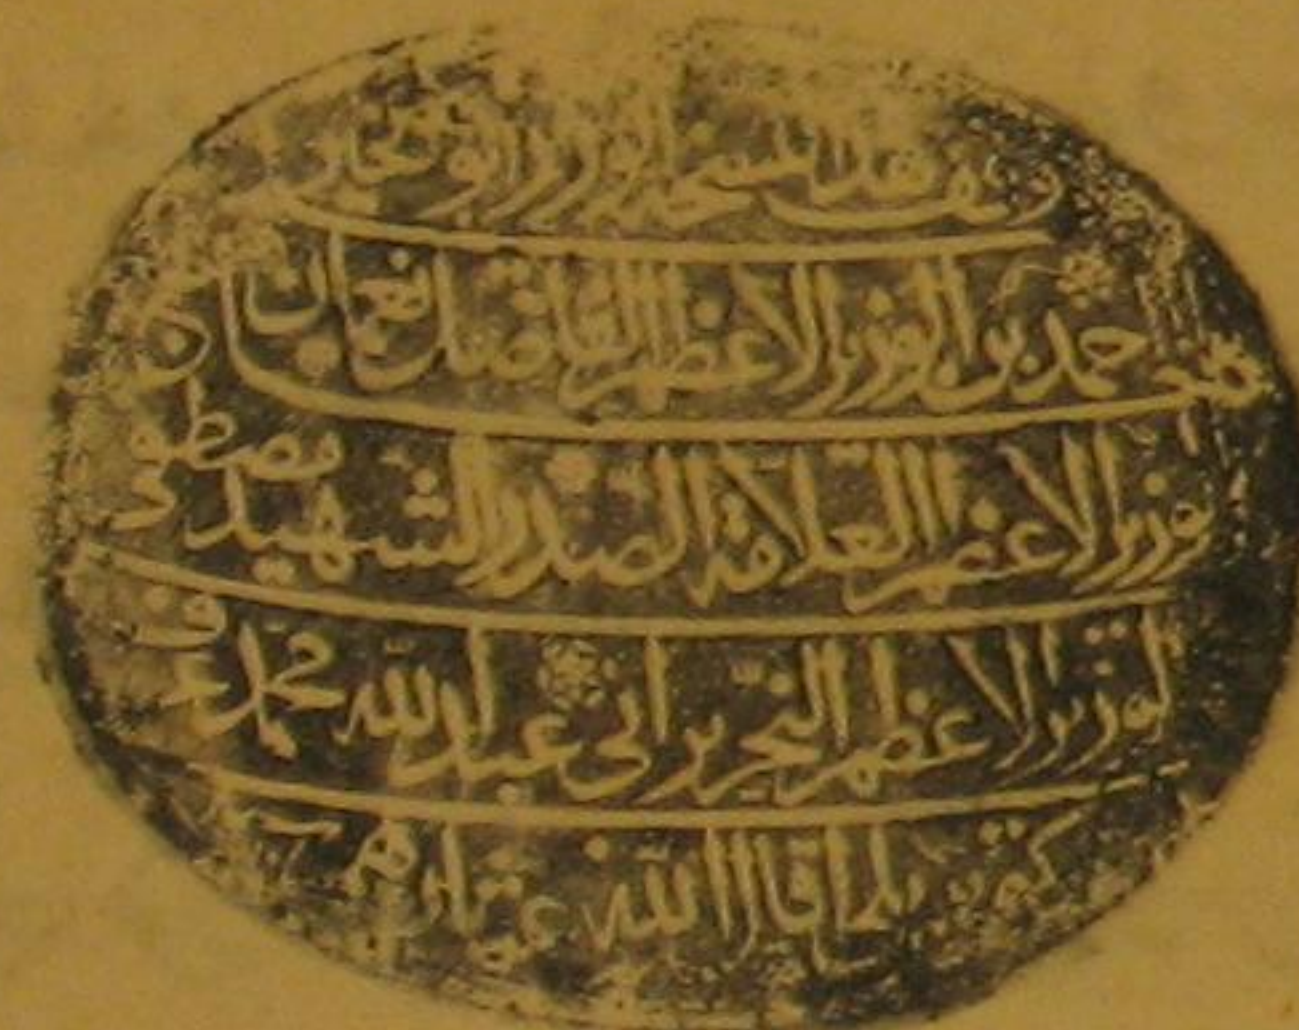 وقف هذا النسخة الوزير ابو الخير
احمد بن الوزير الاعظم الفاضل نعمان بن
الوزير الاعظم العلامة الصدر الشهيد مصطفى
الوزير الاعظم النحرير ابي عبد الله محمد عرف
كوپريلى اقال الله عثارهم